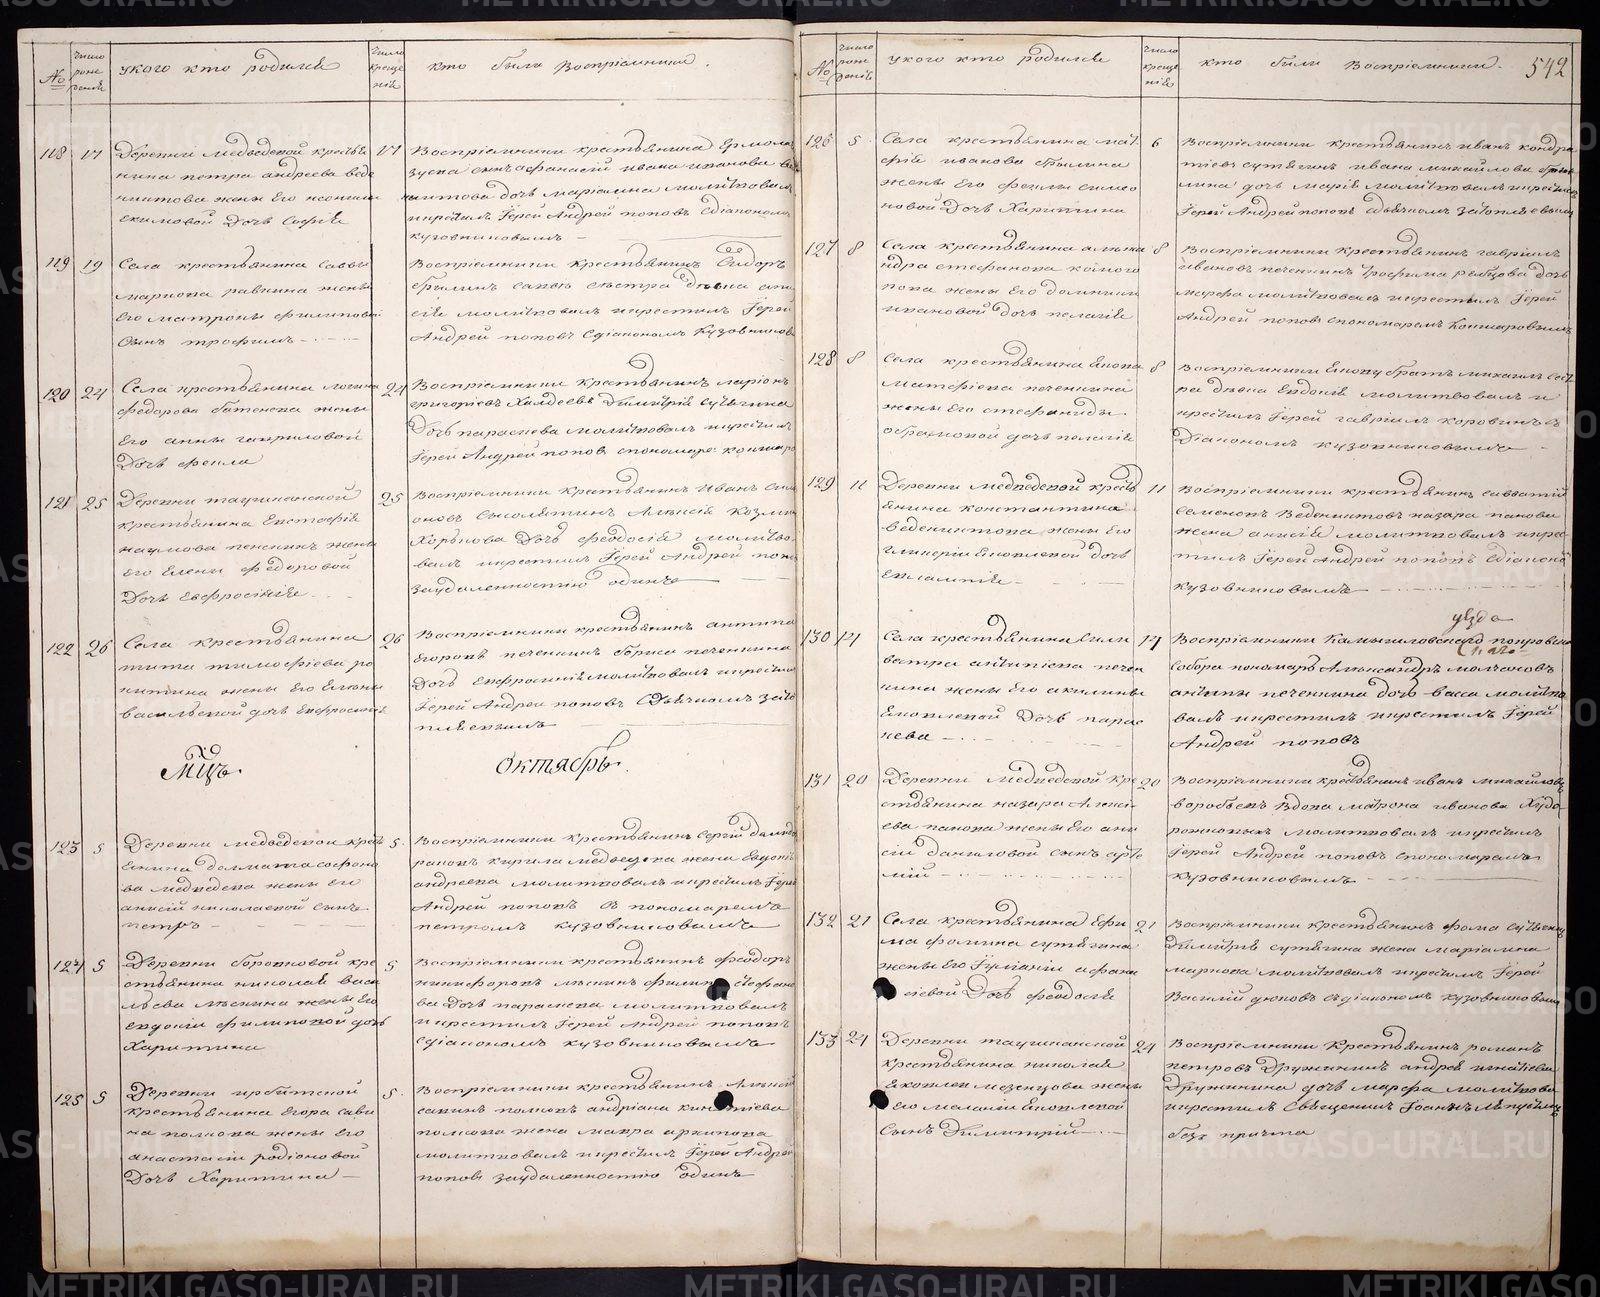 №
число рожденiя
у кого кто родился
число крещенiя
кто были Воспрiемники.
118 17 Деревни медведевой крестья
нина петра андреева веде
нихтова жены Его ксенiи
екимовой Дочь Софiя
17 Воспрiемники крестьянина Ермола
афанасiй ивана иванова ве
никтова дочь марiамна молитвовалъ
и крестилъ Iерей Андрей поповъ съ дiакономъ
кузовниковымъ
119 19 Села крестьянина саввы
маркова равкина жены
Его матроны филиповой
Сынъ трофимъ
19 Воспрiемники крестьянинъ Сидоръ
сестра девка
молитвовалъ и крестилъ Iерей
Андрей поповъ с дiакономъ Кузовников
120 24 Села крестьянина логина
федорова батенева жены
Его анны гавриловой
Дочь фекла
24 Воспрiемники крестьянинъ ларiонъ
григорiевъ Халдеевъ Димитрiя сутягина
Дочь параскева молитвовалъ и крестилъ
Iерей Андрей поповъ с пономаре: коншаро
121 25 Деревни таушканской
крестьянина Евстафiя
наумова пенскихъ жены
его Елены федоровой
Дочь Евфросинiя
25 Воспрiемники крестьянинъ Иванъ
Сысолятинъ Алексiя Козми
Хорькова Дочь феодосiя молитво
валъ и крестилъ Iерей Андрей попо
заудаленностiю одинъ
122 26 Села крестьянина
тита тимофiева ро
китина жены Его Елены
васильевой дочь Евфросинiя
26 Воспрiемники крестьянинъ антипа
Егоровъ печенкинъ бориса печенкина
Дочь Евфросинiя молитвовалъ и крестилъ
Iерей Андрей поповъ С дьячкомъ зато
пляевымъ
Мцъ. Октябрь.
123 5 Деревни медведевой крест
янина далмата софоно
ва медведева жены его
анисiи николаевой сынъ
петръ
5. Воспрiемники крестьянинъ Сергiй
кирила медведева жена Евдокiя
андреева молитвовалъ и крестилъ Iерей
Андрей поповъ с пономаремъ
петромъ кузовниковымъ
124 5 Деревни боровковой кре
стьянина николая васи
льева лескина жены Его
евдокiи филиповой дочь
Харитина
5 Воспрiемники крестьянинъ феодоръ
никифоровъ лескинъ филипа стефано
ва Дочь параскева молитвовалъ
и крестилъ Iерей Андрей поповъ
С дiакономъ кузовниковымъ
125 5 Деревни ирбитской
крестьянина Егора сави
на полкова жены Его
анастасiи родiоновой
Дочь Харитина
5. Воспрiемники крестьянинъ Алексей
савинъ полковъ андрiана
полкова жена мавра архипова
молитвовалъ и крестилъ Iерей Андрей
поповъ заудаленностiю одинъ
№
число рожденiя
у кого кто родился
число крещенiя
кто были Воспрiемники.
542
126 5 Села крестьянина мат
фiя иванова брылина
жены Его феклы симео
новой Дочь Харитина
6 Воспрiемники крестьянинъ иванъ кондра
тiевъ сутягинъ ивана михайлова бры
лина дочь марiя молитвовалъ и крестилъ
Iерей Андрей поповъ с дьячкомъ затопляевымъ
127 8 Села крестьянина алекса
ндра стефанова
пова жены Его домники
ивановой Дочь пелагiя
8 Воспрiемники Крестьянинъ гаврiилъ
ивановъ печенкинъ трофима рябцова дочь
марфа молитвовалъ и крестилъ Iерей
Андрей поповъ с пономаремъ Коншаровымъ
128 8 Села крестьянина Якова
матфiева печенкина
жены Его стефаниды
абрамовой дочь пелагiя
8 Воспрiемники Якову братъ михаилъ сест
ра девка Евдокiя молитвовалъ и
крестилъ Iерей гаврiилъ коровинъ съ
Дiакономъ кузовниковымъ
129 11 Деревни медведевой кресть
янина константина
веденихтова жены Его
гликерiи Яковлевой дочь
Евлампiя
11 Воспрiемники крестьянинъ савватiй
Семеновъ Веденихтовъ назара панова
жена анисiя молитвовалъ и крес
тилъ Iерей Андрей поповъ с дiакономъ
Кузовниковымъ
130 14 Села крестьянина Сили
вестра антипiева печен
кина жены Его акилины
Яковлевой Дочь парас
кева
14 Воспрiемники Камышловскаго уезда покровска
собора пономарь Александръ молчановъ
антипы печенкина дочь васса молитво
валъ и крестилъ и крестилъ Iерей
Андрей поповъ
131 20 Деревни Медведевой кре
стьянина назара Алекси
ева панова жены Его ани
сiи даниловой сынъ арте
мiй
20 Воспрiемники крестьянинъ иванъ михайловъ
воробьевъ Вдова матрона иванова Худо
рожковыхъ молитвовалъ и крестилъ
Iерей Андрей поповъ с пономаремъ
Кузовниковымъ
132 21 Села крестьянина Ефи
ма фомина сутягина
жены Его Iулiанiи афана
сiевой Дочь феодосiя
21 Воспрiемники крестьянинъ фома сутягинъ
Димитрiя сутягина жена марiамна
маркова молитвовалъ и крестилъ Iерей
Василiй дюковъ с дiакономъ кузовниковымъ
133 24 Деревни таушканской
крестьянина николая
Яковлева мезенцова жены
Его маланiи Яковлевой
Сынъ Димитрiй
24 Воспрiемники Крестьянинъ романъ
петровъ Дружининъ андрея игнатiева
Дружинина дочь марфа молитвовалъ
и крестилъ Священникъ Iоаннъ
безъ причта
METRIKI.GASO-URAL.RU